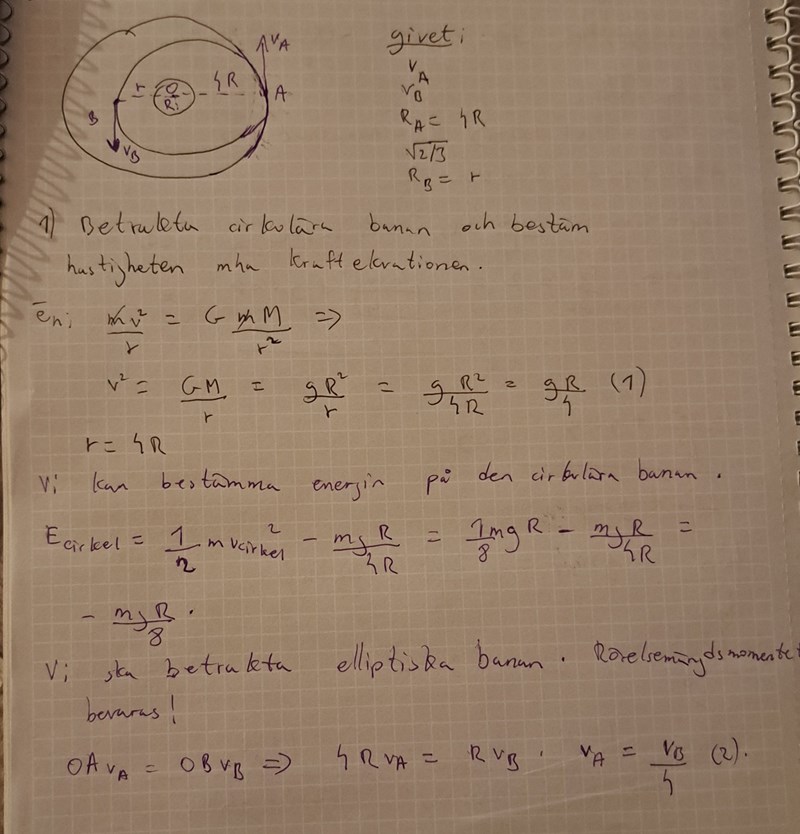 vA
r
O
Ri
4R
A
B
vB
givet:
vA
vB
RA = 4R
√2/3
RB = r
1) Betrakta cirkulära banan och bestäm
hastigheten mha kraftekvationen.
en: mv²/r = G mM/r² =>
v² = GM/r = gR²/r = gR²/4R = gR/4 (1)
r = 4R
Vi kan bestämma energin på den cirkulära banan.
Ecirkel = 1/2 m vcirkel² - mgR/4R = 1/8 mgR - mgR/4R =
- mgR/8 .
Vi ska betrakta elliptiska banan. Rörelsemängdsmomentet
bevaras!
OA vA = OB vB => 4R vA = R vB . vA = vB/4 (2).